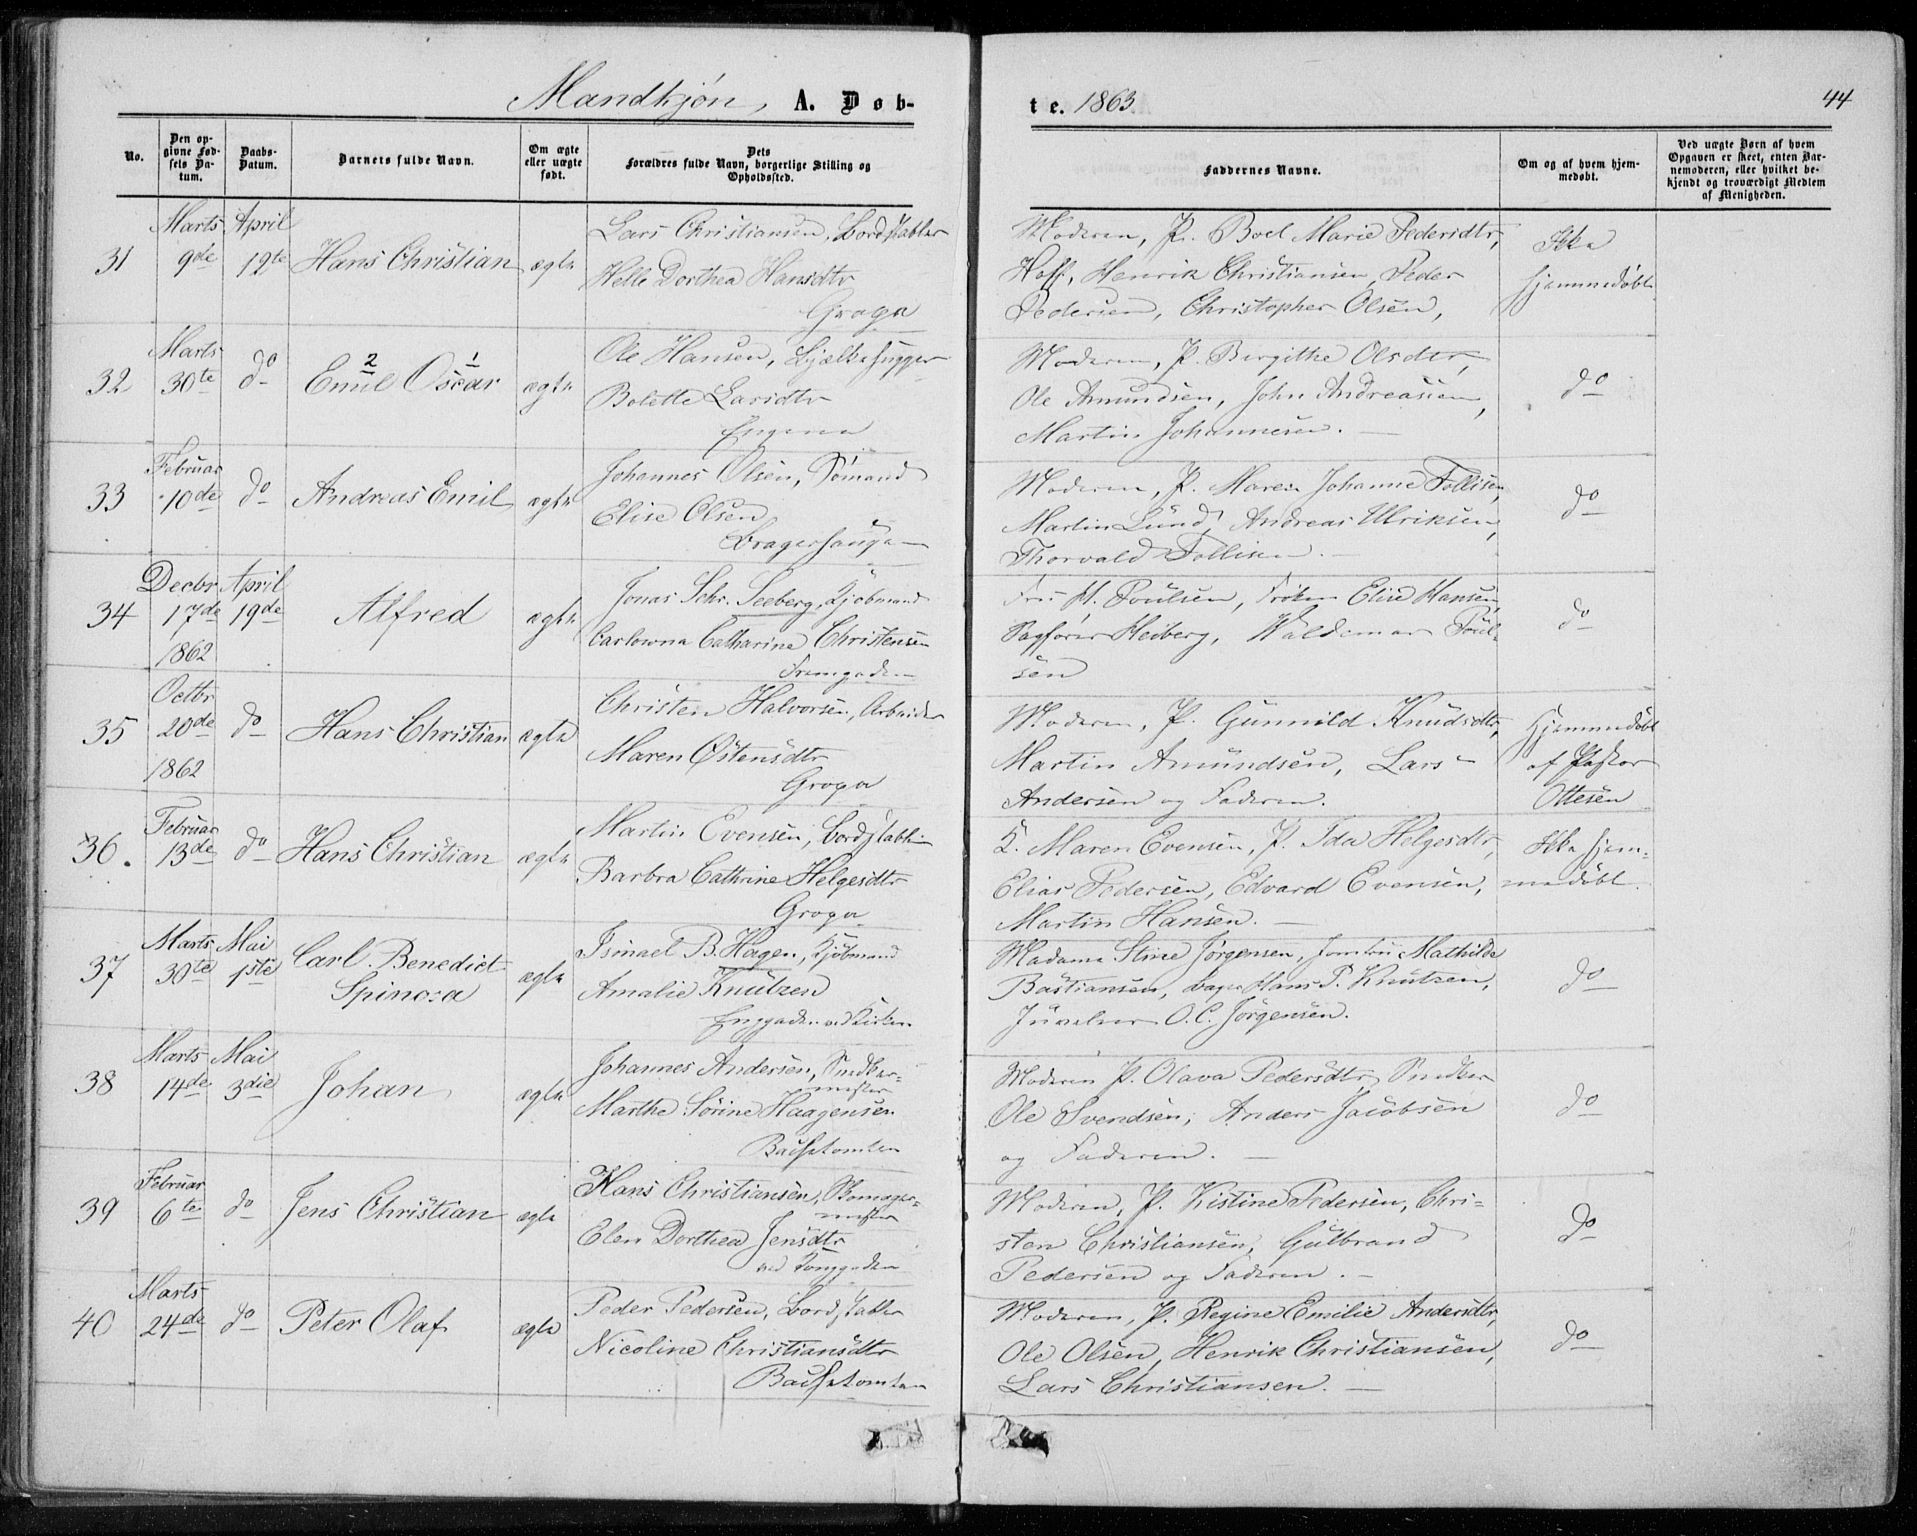 Mandkjøn, A. Døb-
te. 1863
44
No.
Den opgivne Fødsels Datum.
Daabs-Datum.
Barnets fulde Navn.
Om ægte eller uægte født.
Dets Forældres fulde Navn, borgerlige Stilling og Opholdssted.
Faddernes Navne.
Om og af hvem hjemmedøbt.
Ved uægte Børn af hvem Opgaven er skeet, enten Barnemoderen, eller hvilket bekjendt og troværdigt Medlem af Menigheden.
31 Marts 9de April 12te Hans Christian ægte
Lars Christiansen, Bordstabler
Helle Dorthea Hansdtr
Groga
Moderen, P. Boel Marie Pedersdtr,
Hoff, Henrik Christiansen, Peder
Pedersen, Christopher Olsen,
Ikke
hjemmedøbt
32 Marts 30te do Emil 2 Oscar 1 ægte
Ole Hansen, Bjælkehugger
Bolette Larsdtr
Engene
Moderen, P. Birgithe Olsdtr,
Ole Amundsen, John Andreassen,
Martin Johannesen. —
do
33 Februar 10de do Andreas Emil ægte
Johannes Olsen, Sømand
Elise Olsen
Bragerhaugen
Moderen, P. Maren Johanne Tollisen,
Martin Lund, Andreas Ulriksen,
Thorvald Tollisen. —
do
34 Decbr 17de 1862 April 19de Alfred ægte
Jonas Schr. Seeberg, Kjøbmand
Carlowna Catharine Christensen
Fremgaden
Fru H. Poulsen, Frøken Elise Hansen,
Sagfører Heiberg, Waldemar Poul-
sen
do
35 Octbr 20de 1862 do Hans Christian ægte
Christen Halvorsen, Arbeider
Maren Østensdtr
Groga
Moderen, P. Gunnild Knudsdtr,
Martin Amundsen, Lars
Andersen og Faderen.
Hjemmedøbt
af Pastor
Ottesen
36. Februar 13de do Hans Christian ægte
Martin Evensen, Bordstabler
Barbra Cathrine Helgesdtr
Groga
K. Maren Evensen, P. Ida Helgesdtr,
Elias Pedersen, Edvard Evensen,
Martin Hansen. —
Ikke hjem-
medøbt.
37 Marts 30te Mai 1ste Carl Benedict
Spinoza ægte
Ismael B. Hagen, Kjøbmand
Amalie Knutzen
Enggaden ved Kirken
Madame Stine Jørgensen, Jomfru Mathilde
Bastiansen, Bager Hans P. Knutzen,
Juveleer O. C. Jørgensen.
do
38 Marts 14de Mai 3die Johan ægte
Johannes Andersen, Snedker-
mester
Marthe Sørine Haagensen
Bachetomten
Moderen P. Olava Pedersdtr, Snedker
Ole Svendsen, Anders Jacobsen
og Faderen. —
do
39 Februar 6te do Jens Christian ægte
Hans Christiansen, Skomager-
mester
Elen Dorthea Jensdtr
ved Tomtgaden
Moderen, P. Kistine Pedersen, Chri-
sten Christiansen, Gulbrand
Pedersen og Faderen. —
do
40 Marts 24de do Peter Olaf ægte
Peder Pedersen, Bordstabler
Nicoline Christiansdtr
Bachetomten
Moderen, P. Regine Emilie Andersdtr,
Ole Olsen, Henrik Christiansen,
Lars Christiansen. —
do